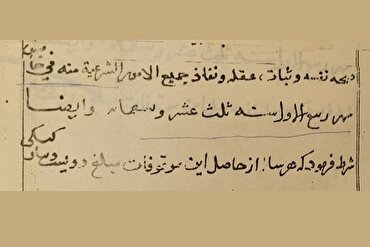 صحه نفسه و ثبات عقله و نفاذ جميع الامور الشرعية منه في
شهر ربيع الاول سنه ثلث عشر و سبعمائه وايضا
شرط فرمود که هر سال از حاصل اين موقوفات مبلغ دويست دينار